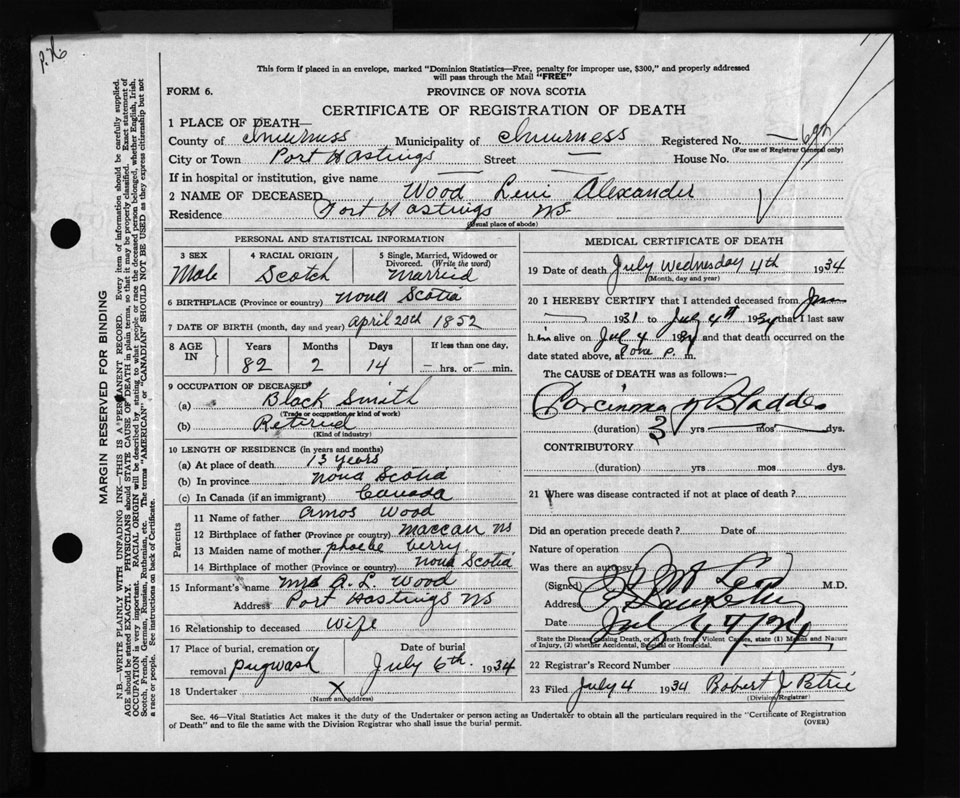 P.H.
This form if placed in an envelope, marked "Dominion Statistics—Free, penalty for improper use, $300," and properly addressed
will pass through the Mail "FREE"
FORM 6.
PROVINCE OF NOVA SCOTIA
CERTIFICATE OF REGISTRATION OF DEATH
1 PLACE OF DEATH—
County of Inverness Municipality of Inverness Registered No.
(For use of Registrar General only)
City or Town Port Hastings Street — House No.
If in hospital or institution, give name — —
2 NAME OF DECEASED Wood Levi Alexander
Residence Port Hastings NS
(Usual place of abode)
PERSONAL AND STATISTICAL INFORMATION
3 SEX Male
4 RACIAL ORIGIN Scotch
5 Single, Married, Widowed or Divorced. (Write the word) Married
6 BIRTHPLACE (Province or country) Nova Scotia
7 DATE OF BIRTH (month, day and year) April 20th 1852
8 AGE IN Years 82 Months 2 Days 14 If less than one day, — hrs. or — min.
9 OCCUPATION OF DECEASED
(a) Black Smith
(Trade or occupation or kind of work)
(b) Retired
(Kind of industry)
10 LENGTH OF RESIDENCE (in years and months)
(a) At place of death 13 years
(b) In province Nova Scotia
(c) In Canada (if an immigrant) Canada
Parents
11 Name of father Amos Wood
12 Birthplace of father (Province or country) Maccan NS
13 Maiden name of mother Phoebe Berry
14 Birthplace of mother (Province or country) Nova Scotia
15 Informant's name Mrs A. L. Wood
Address Port Hastings NS
16 Relationship to deceased Wife
17 Place of burial, cremation or removal Pugwash
Date of burial July 6th. 1934
18 Undertaker X
(Name and address)
MEDICAL CERTIFICATE OF DEATH
19 Date of death July Wednesday 4th 1934
(Month, day and year)
20 I HEREBY CERTIFY that I attended deceased from
— 1931 to July 4th 1934 that I last saw
him alive on Jul 4 1934 and that death occurred on the
date stated above, at one P. m.
The CAUSE of DEATH was as follows:—
Carcinoma of Bladder
(duration) 3 yrs mos dys.
CONTRIBUTORY
(duration) yrs mos dys.
21 Where was disease contracted if not at place of death?
Did an operation precede death? Date of
Nature of operation
Was there an autopsy
(Signed) M.D.
Address
Date
State the Disease causing Death, or in death from Violent Causes, state (1) Means and Nature
of Injury, (2) whether Accidental, Suicidal or Homicidal.
22 Registrar's Record Number
23 Filed July 4 1934 Robert J Petrie
(Division Registrar)
Sec. 46—Vital Statistics Act makes it the duty of the Undertaker or person acting as Undertaker to obtain all the particulars required in the "Certificate of Registration
of Death" and to file the same with the Division Registrar who shall issue the burial permit.
(OVER)
MARGIN RESERVED FOR BINDING
N.B.—WRITE PLAINLY WITH UNFADING INK—THIS IS A PERMANENT RECORD. Every item of information should be carefully supplied.
AGE should be stated EXACTLY. PHYSICIANS should STATE CAUSE OF DEATH in plain terms, so that it may be properly classified. Exact statement of
OCCUPATION is very important. RACIAL ORIGIN will be described by stating to what people or race the deceased person belonged, whether English, Irish,
Scotch, French, German, Russian, Ruthenian, etc. The terms "AMERICAN" or "CANADIAN" SHOULD NOT BE USED as they express citizenship but not
a race or people. See instructions on back of Certificate.